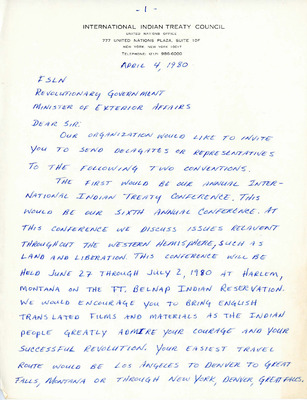 - 1 -
INTERNATIONAL INDIAN TREATY COUNCIL
UNITED NATIONS OFFICE
777 UNITED NATIONS PLAZA, SUITE 10F
NEW YORK, NEW YORK 10017
TELEPHONE: (212) 986-6000
APRIL 4, 1980
FSLN
REVOLUTIONARY GOVERNMENT
MINISTER OF EXTERIOR AFFAIRS
DEAR SIR:
OUR ORGANIZATION WOULD LIKE TO INVITE
YOU TO SEND DELAGATES OR REPRESENTATIVES
TO THE FOLLOWING TWO CONVENTIONS.
THE FIRST WOULD BE OUR ANNUAL INTER-
NATIONAL INDIAN TREATY CONFERENCE. THIS
WOULD BE OUR SIXTH ANNUAL CONFERENCE. AT
THIS CONFERENCE WE DISCUSS ISSUES RELAVENT
THROUGHOUT THE WESTERN HEMISPHERE, SUCH AS
LAND AND LIBERATION. THIS CONFERENCE WILL BE
HELD JUNE 27 THROUGH JULY 2, 1980 AT HARLEM,
MONTANA ON THE FT. BELNAP INDIAN RESERVATION.
WE WOULD ENCOURAGE YOU TO BRING ENGLISH
TRANSLATED FILMS AND MATERIALS AS THE INDIAN
PEOPLE GREATLY ADMIRE YOUR COURAGE AND YOUR
SUCCESSFUL REVOLUTION. YOUR EASIEST TRAVEL
ROUTE WOULD BE LOS ANGELES TO DENVER TO GREAT
FALLS, MONTANA OR THROUGH NEW YORK, DENVER, GREAT FALLS.